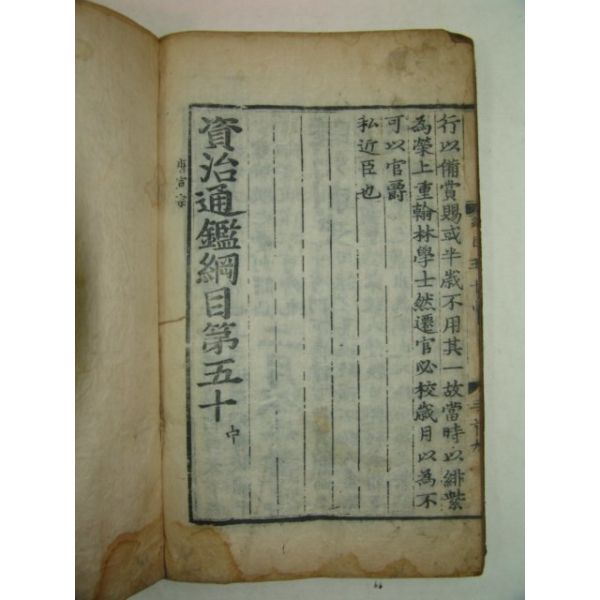 行以備賞賜或半歲不用其一故當時以緋紫
為榮上重翰林學士然遷官必校歲月以為不
可以官爵
私近臣也
資治通鑑綱目第五十 中
唐宣宗